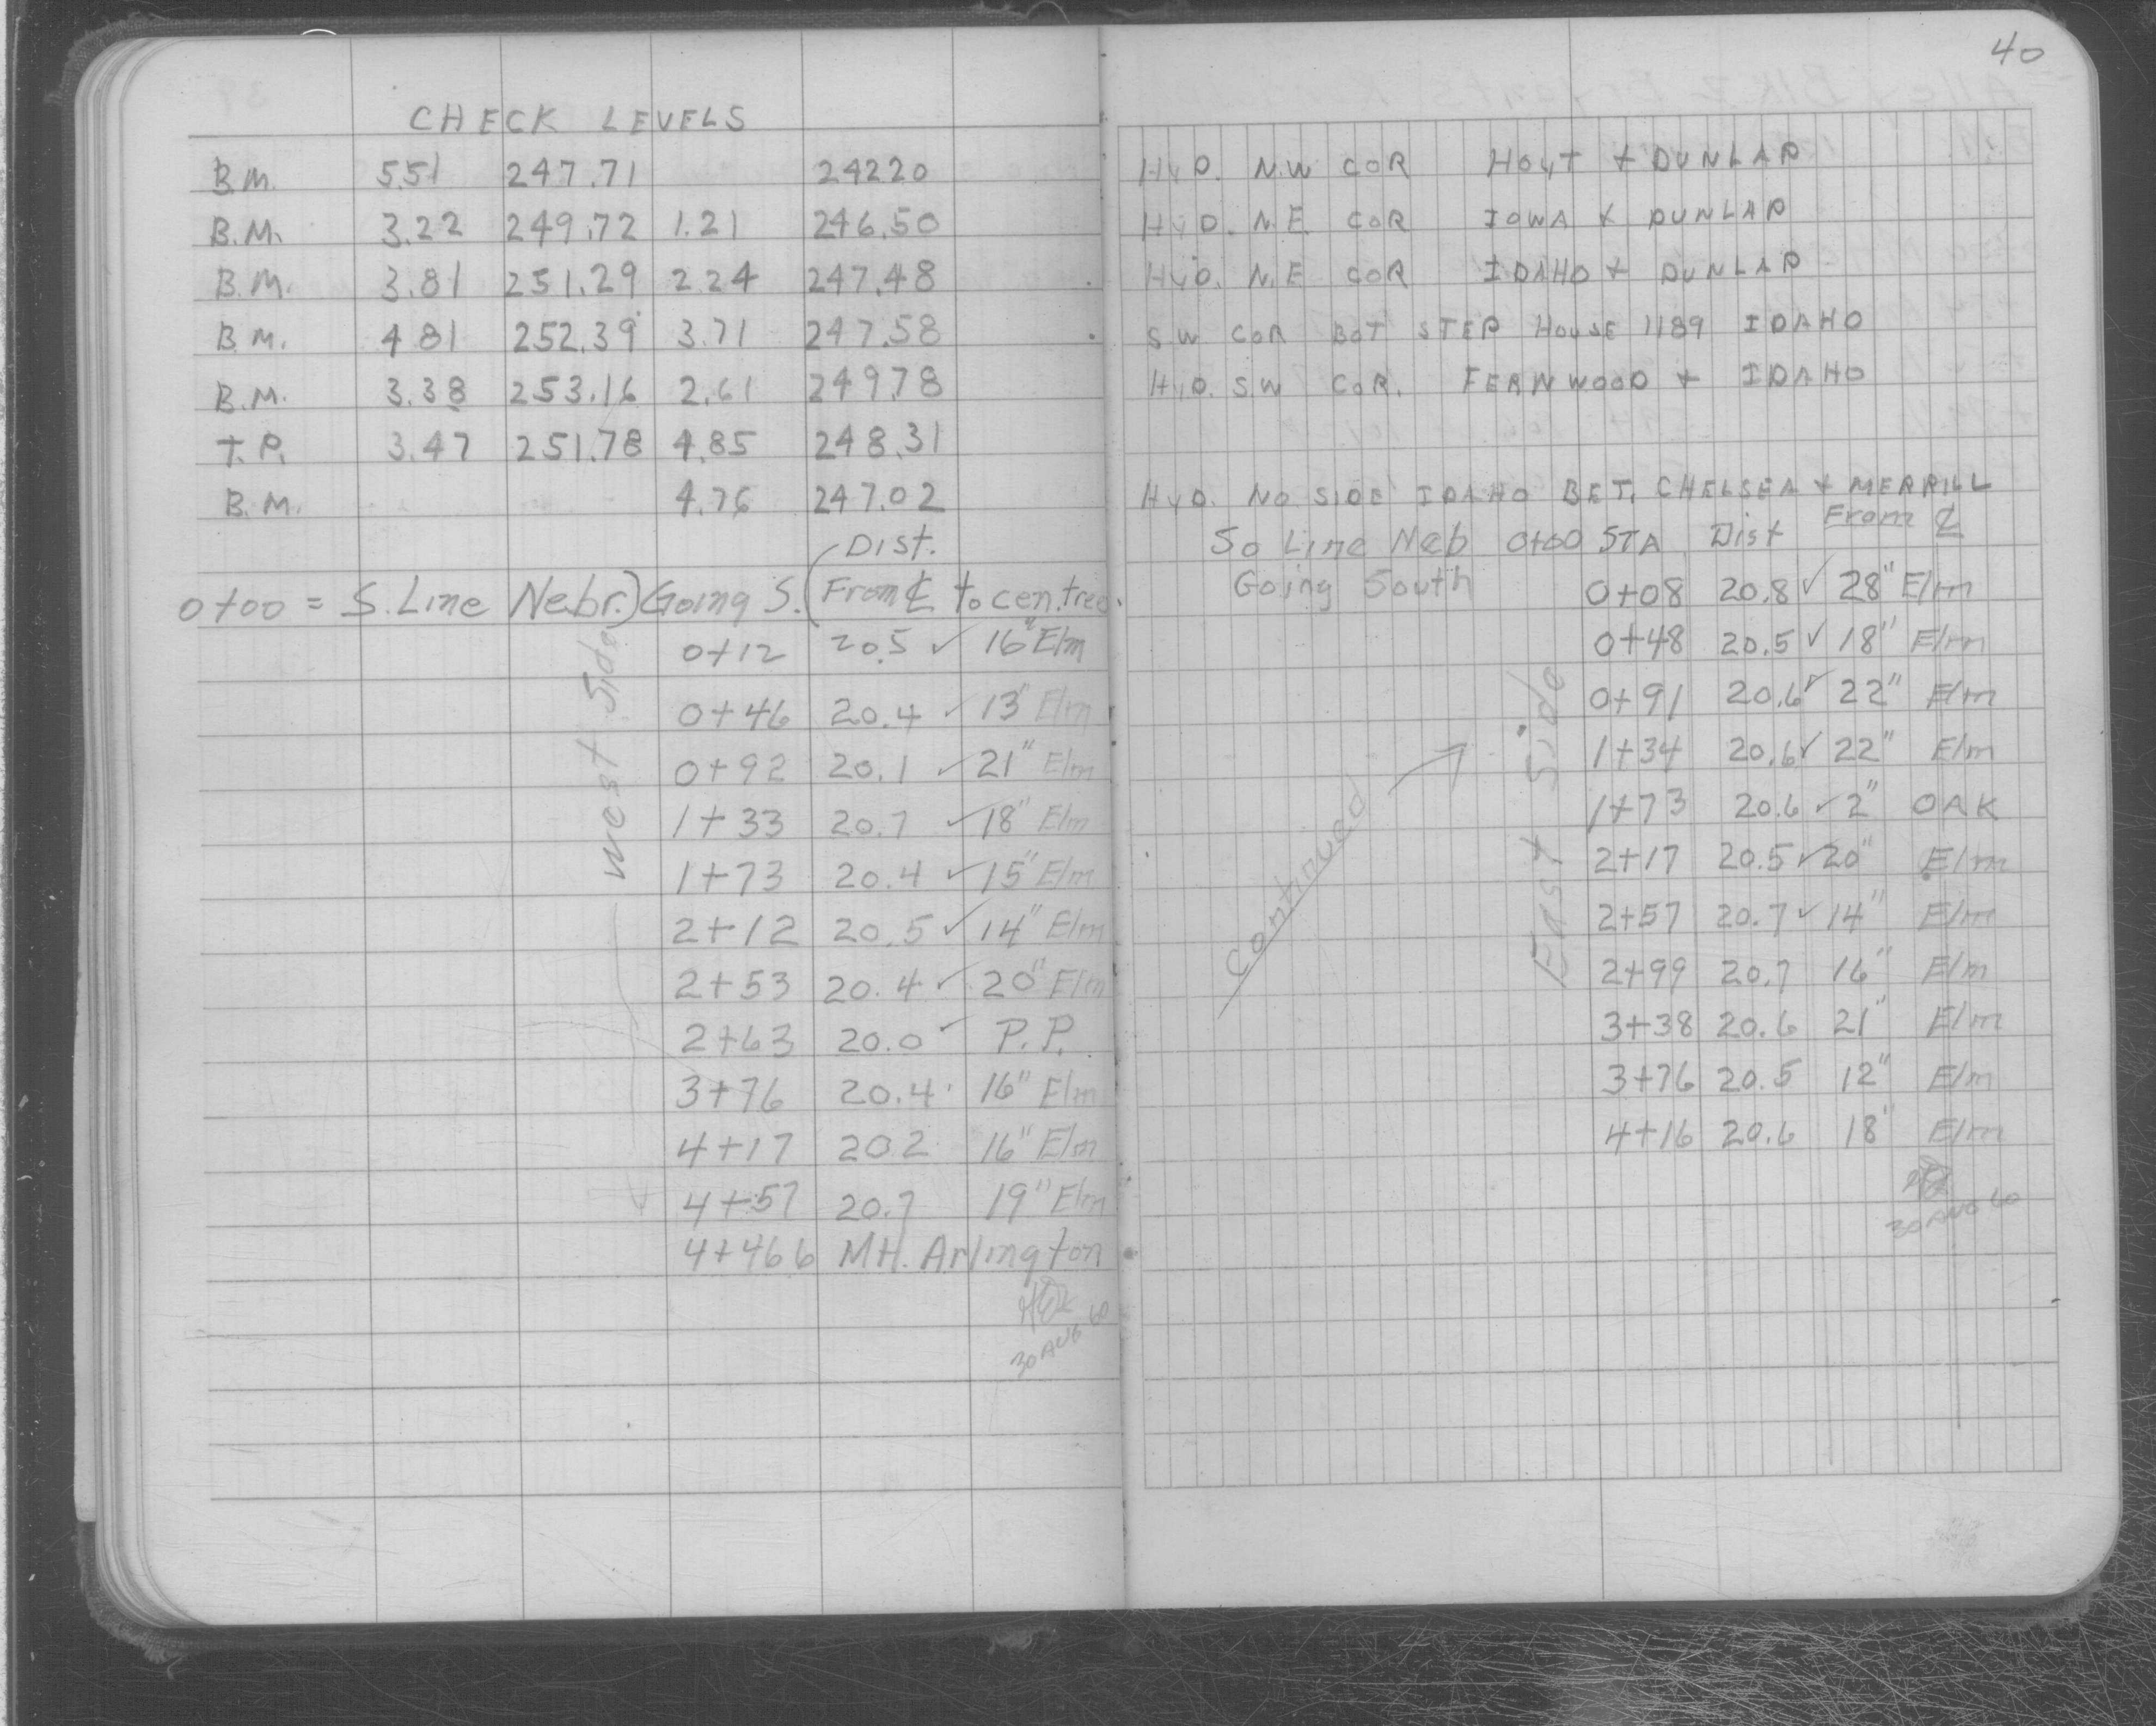 CHECK LEVELS
B.M. 5.51 247.71 242.20
B.M. 3.22 249.72 1.21 246.50
B.M. 3.81 251.29 2.24 247.48
B.M. 4.81 252.39 3.71 247.58
B.M. 3.38 253.16 2.61 249.78
T.P. 3.47 251.78 4.85 248.31
B.M. 4.76 247.02
Dist.
0+00 = S. Line Nebr.) Going S. (From ℄ to cen. tree.
West Side
0+12 20.5 ✓ 16" Elm
0+46 20.4 ✓ 13" Elm
0+92 20.1 ✓ 21" Elm
1+33 20.7 ✓ 18" Elm
1+73 20.4 ✓ 15" Elm
2+12 20.5 ✓ 14" Elm
2+53 20.4 ✓ 20" Elm
2+63 20.0 ✓ P.P.
3+76 20.4 16" Elm
4+17 20.2 16" Elm
4+57 20.7 19" Elm
4+466 MH. Arlington
30 AUG 60
40
HYD. N.W COR HOYT + DUNLAP
HYD. N.E. COR IOWA + DUNLAP
HYD. N.E COR IDAHO + DUNLAP
SW COR BOT STEP HOUSE 1189 IDAHO
HYD. SW COR. FERNWOOD + IDAHO
HYD. NO SIDE IDAHO BET. CHELSEA + MERRILL
So Line Neb 0+00 STA Dist From ℄
Going South 0+08 20.8 ✓ 28" Elm
0+48 20.5 ✓ 18" Elm
0+91 20.6 ✓ 22" Elm
1+34 20.6 ✓ 22" Elm
1+73 20.6 ✓ 2" OAK
2+17 20.5 ✓ 20" Elm
2+57 20.7 ✓ 14" Elm
2+99 20.7 16" Elm
3+38 20.6 21" Elm
3+76 20.5 12" Elm
4+16 20.6 18" Elm
Continued
East Side
30 AUG 60